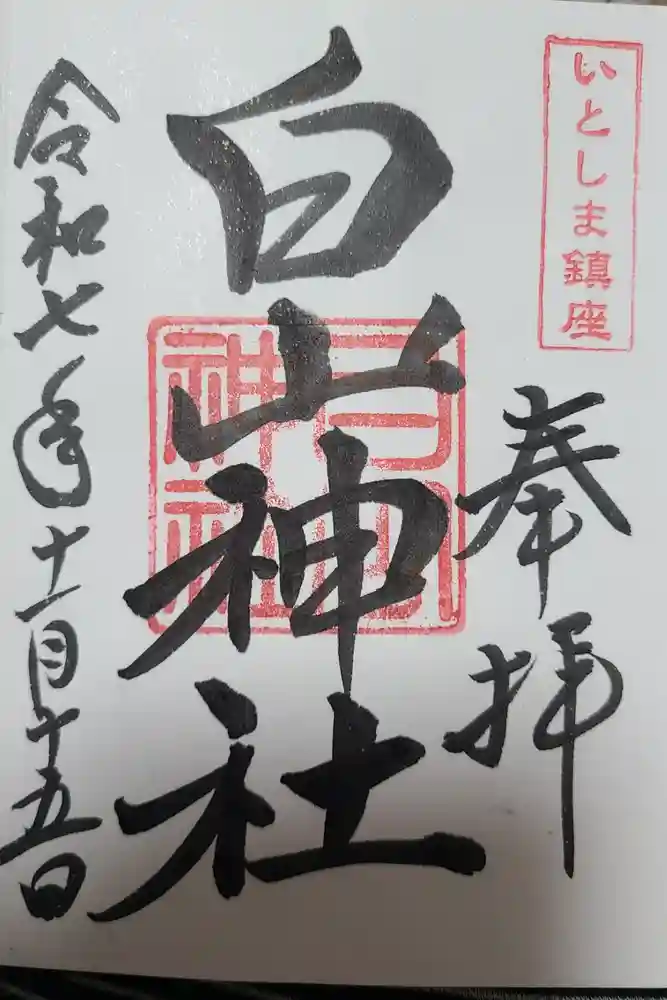 いとしま鎮座
奉拝
白山神社
白山
神社
令和七年十一月十五日